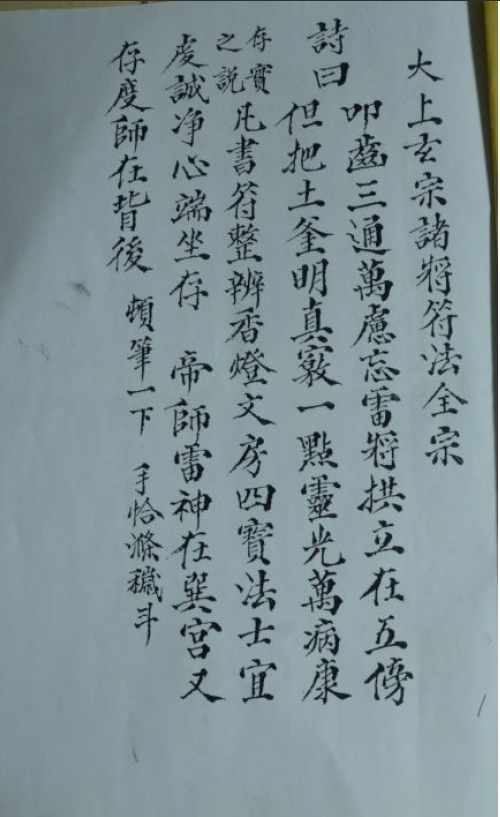 大上玄宗諸將符法全宗
詩曰 叩齒三通萬慮忘雷將拱立在五傍
但把土釜明真竅一點靈光萬病康
存實之説 凡書符整辨香燈文房四寶法士宜
虔誠净心端坐存 帝師雷神在巽宫又
存度師在背後 頓筆一下 手恰滌穢斗